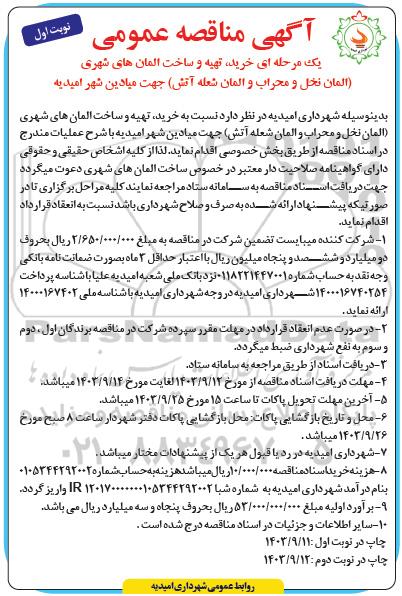 نوبت اول
آگهی مناقصه عمومی
یک مرحله ای خرید، تهیه و ساخت المان های شهری
(المان نخل و محراب و المان شعله آتش) جهت میادین شهر امیدیه
بدینوسیله شهرداری امیدیه در نظر دارد نسبت به خرید، تهیه و ساخت المان های شهری
(المان نخل و محراب و المان شعله آتش) جهت میادین شهر امیدیه با شرح عملیات مندرج
در اسناد مناقصه از طریق بخش خصوصی اقدام نماید. لذا از کلیه اشخاص حقیقی و حقوقی
دارای گواهینامه صلاحیت دار معتبر در خصوص ساخت المان های شهری دعوت میگردد
جهت دریافت اسناد مناقصه به سامانه ستاد مراجعه نمایند کلیه مراحل برگزاری تا در
صورتیکه پیشنهاد ارائه شده به صرف و صلاح شهرداری باشد نسبت به انعقاد قرارداد
اقدام نماید.
۱- شرکت کننده میبایست تضمین شرکت در مناقصه به مبلغ ۲/۶۵۰/۰۰۰/۰۰۰ ریال بحروف
دو میلیارد و ششصد و پنجاه میلیون ریال با اعتبار حداقل ۳ ماه بصورت ضمانت نامه بانکی
وجه نقد به حساب شماره ۰۱۱۸۲۲۱۴۴۷۰۰۱ نزد بانک ملی شعبه امیدیه علیا با شناسه پرداخت
۱۴۰۰۰۱۶۷۴۰۲۵۴ شهرداری امیدیه در وجه شهرداری امیدیه با شناسه ملی ۱۴۰۰۰۱۶۷۴۰۲
ارائه نماید.
۲- در صورت عدم انعقاد قرارداد در مهلت مقرر سپرده شرکت در مناقصه برندگان اول ، دوم
و سوم به نفع شهرداری ضبط میگردد.
۳- دریافت اسناد از طریق مراجعه به سامانه ستاد.
۴- مهلت دریافت اسناد مناقصه از مورخ ۱۴۰۳/۹/۱۲ لغایت مورخ ۱۴۰۳/۹/۱۴ میباشد.
۵- آخرین مهلت تحویل پاکات تا ساعت ۱۵ مورخ ۱۴۰۳/۹/۲۵ میباشد.
۶- محل و تاریخ بازگشایی پاکات: محل بازگشایی پاکات دفتر شهردار ساعت ۸ صبح مورخ
۱۴۰۳/۹/۲۶ میباشد.
۷- شهرداری امیدیه در رد یا قبول هر یک از پیشنهادات مختار میباشد.
۸- هزینه خرید اسناد مناقصه ۱۰/۰۰۰/۰۰۰ ریال میباشد هزینه به حساب شماره ۰۱۰۵۳۴۴۲۹۲۰۰۲
بنام درآمد شهرداری امیدیه به شماره شبا IR ۱۲۰۱۷۰۰۰۰۰۰۰۱۰۵۳۴۴۲۹۲۰۰۲ واریز گردد.
۹- برآورد اولیه مبلغ ۵۳/۰۰۰/۰۰۰/۰۰۰ ریال بحروف پنجاه و سه میلیارد ریال می باشد.
۱۰- سایر اطلاعات و جزئیات در اسناد مناقصه درج شده است .
چاپ در نوبت اول :۱۴۰۳/۹/۱۱
چاپ در نوبت دوم :۱۴۰۳/۹/۱۲
روابط عمومی شهرداری امیدیه
۰۲۱-۸۸۳۴۹۶۷۰-۵